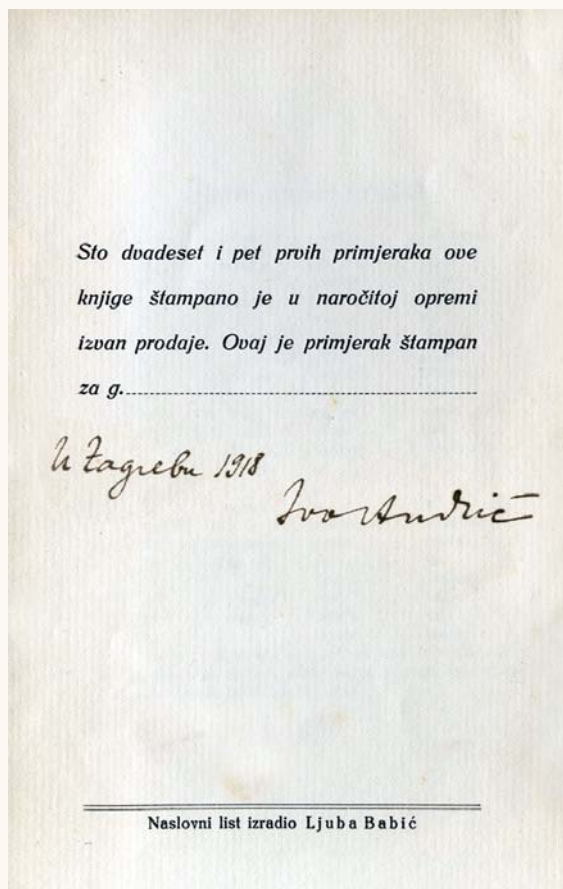 Sto dvadeset i pet prvih primjeraka ove
knjige štampano je u naročitoj opremi
izvan prodaje. Ovaj je primjerak štampan
za g.
U Zagrebu 1918
Ivo Andrić
Naslovni list izradio Ljuba Babić